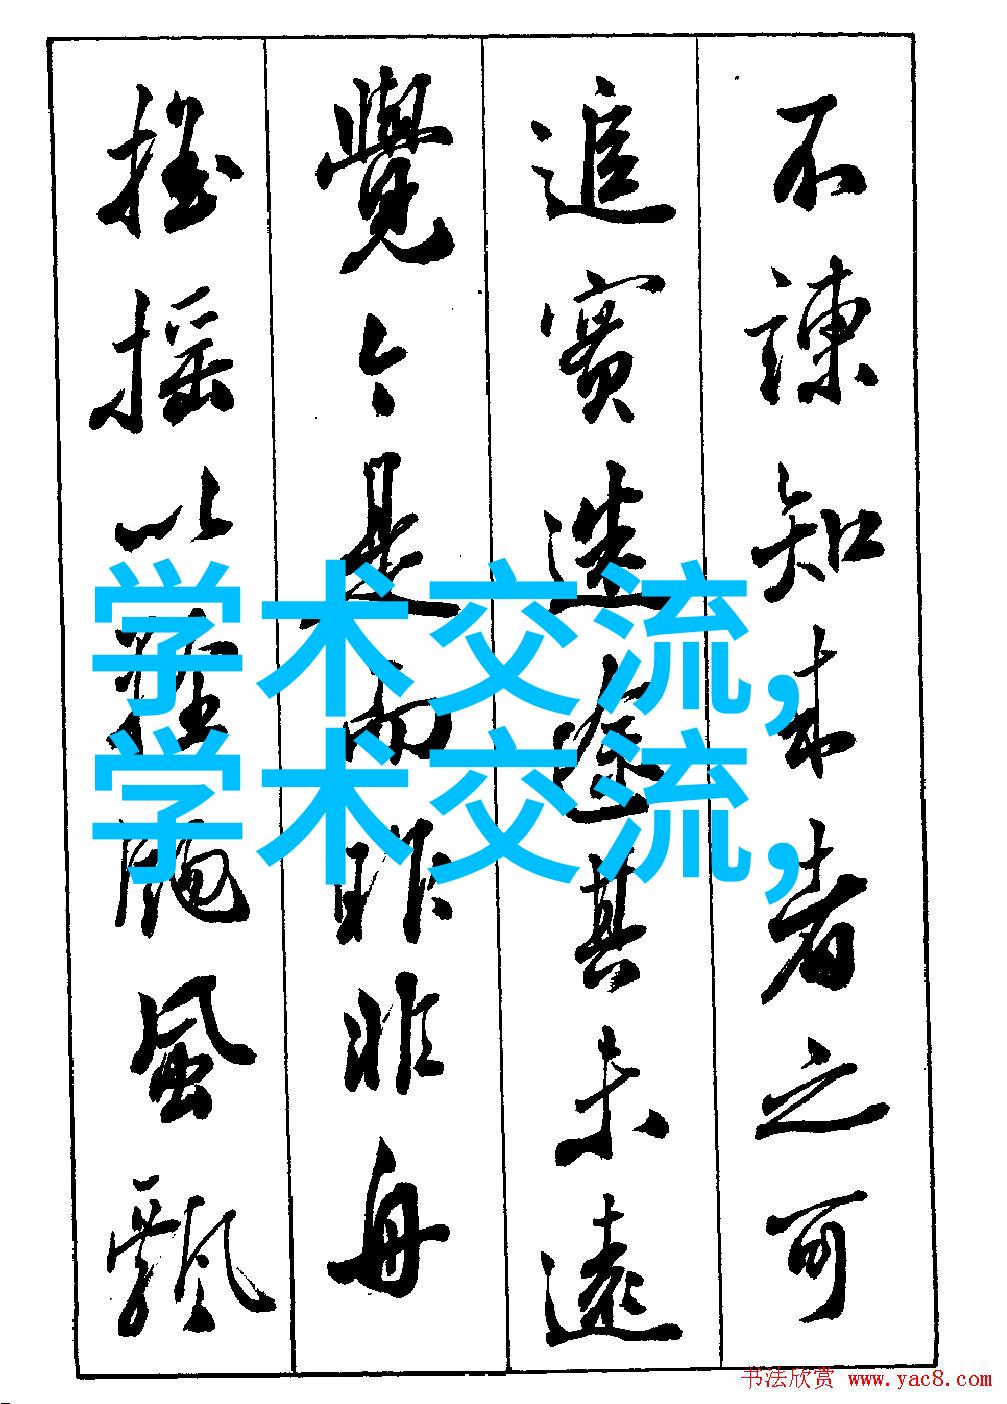 不諫知来者之可
追實迷途其未遠
覺今是而昨非舟
搖搖以輕颺風飄
学术交流,
学术交流,
书法欣赏 www.yac8.com